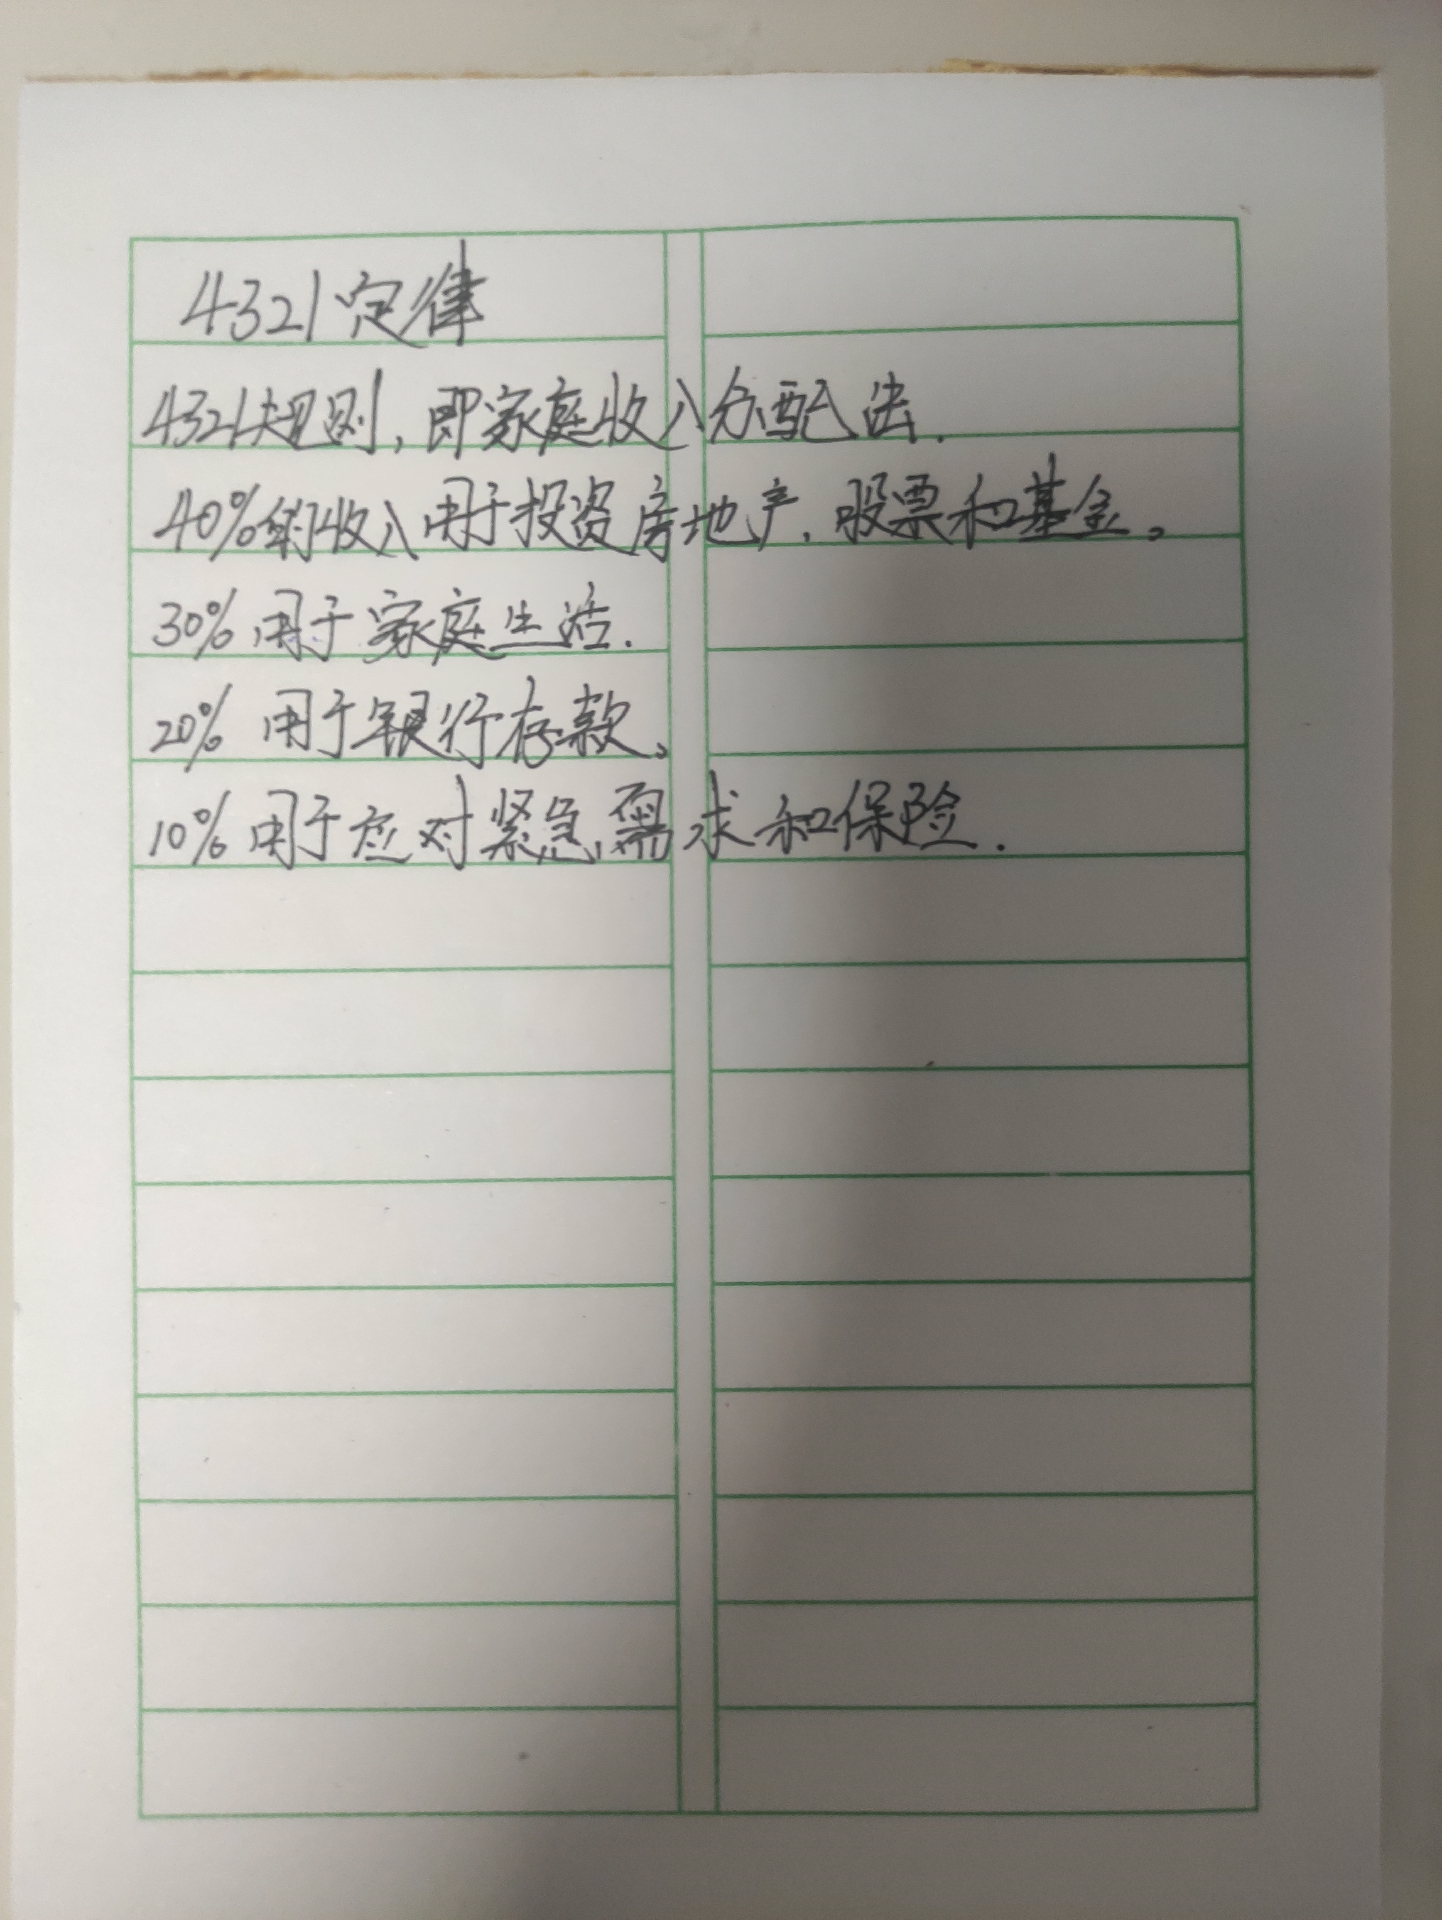 4321定律
4321规则,即家庭收入分配法.
40%的收入用于投资房地产.股票和基金。
30%用于家庭生活.
20%用于银行存款、
10%用于应对紧急需求和保险.